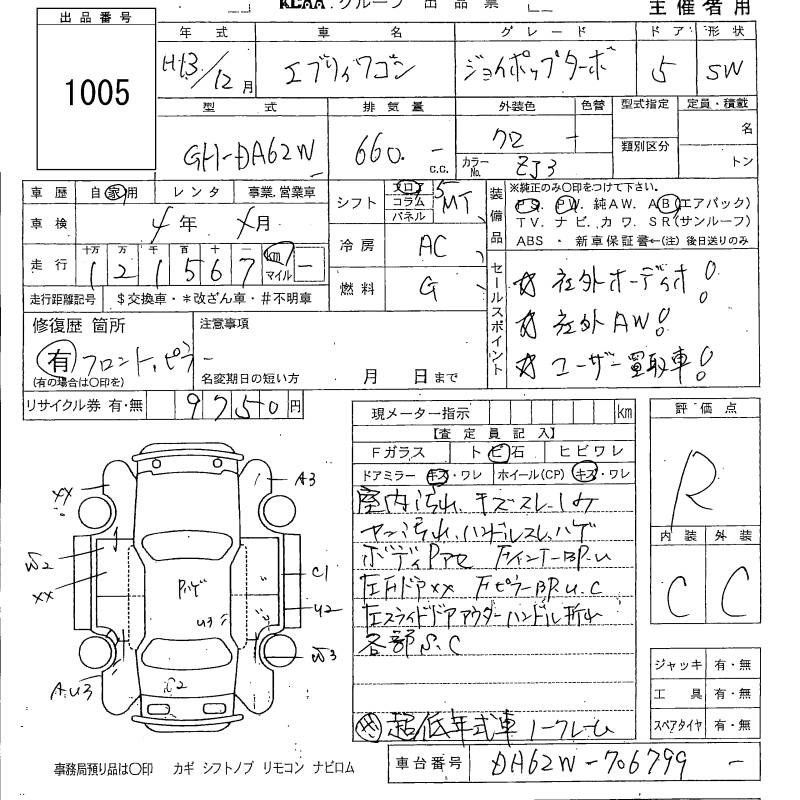 KCAA グループ 出品票
主催者用
出品番号
1005
年式 車名 グレード ドア 形状
H13/12月 エブリィワゴン ジョイポップターボ 5 SW
型式 排気量 外装色 色替 型式指定 定員・積載
GH-DA62W 660. - c.c. クロ 類別区分 名
カラーNo. ZJ3 トン
車歴 自家用 レンタ 事業.営業車
シフト フロア コラム パネル 5 MT
装備品 ※純正のみ○印をつけて下さい。
PS. PW. 純AW. AB(エアバック)
TV. ナビ. カワ. SR(サンルーフ)
ABS ・ 新車保証書←(注) 後日送りのみ
車検 年 月
冷房 AC
走行 十万 万 千 百 十 一
121567 km マイル
走行距離記号 $交換車・*改ざん車・#不明車
燃料 G
セールスポイント
☆ 社外オーディオ!
☆ 社外AW!
☆ ユーザー買取車!
修復歴 箇所
有 フロント、ピラー
(有の場合は○印を)
注意事項
名変期日の短い方 月 日まで
リサイクル券 有・無 9750円
現メーター指示 km
【査定員記入】
Fガラス トビ石 ヒビワレ
ドアミラー キズ・ワレ ホイール(CP) キズ・ワレ
室内汚れ、キズ スレ
汚れ、ハンドルスレ、ハゲ
ボディPアセ FインナーBP.u
左FドアXX FピラーBP.u.C
左スライドドアアウターハンドル折れ
各部S.C
超低年式車 ノークレーム
評価点
R
内装 外装
C C
ジャッキ 有・無
工具 有・無
スペアタイヤ 有・無
A3
XX
W2
XX
AU3
Pハゲ
U3
C2
C1
U2
W3
事務局預り品は○印 カギ シフトノブ リモコン ナビロム
車台番号 DA62W-706799 -